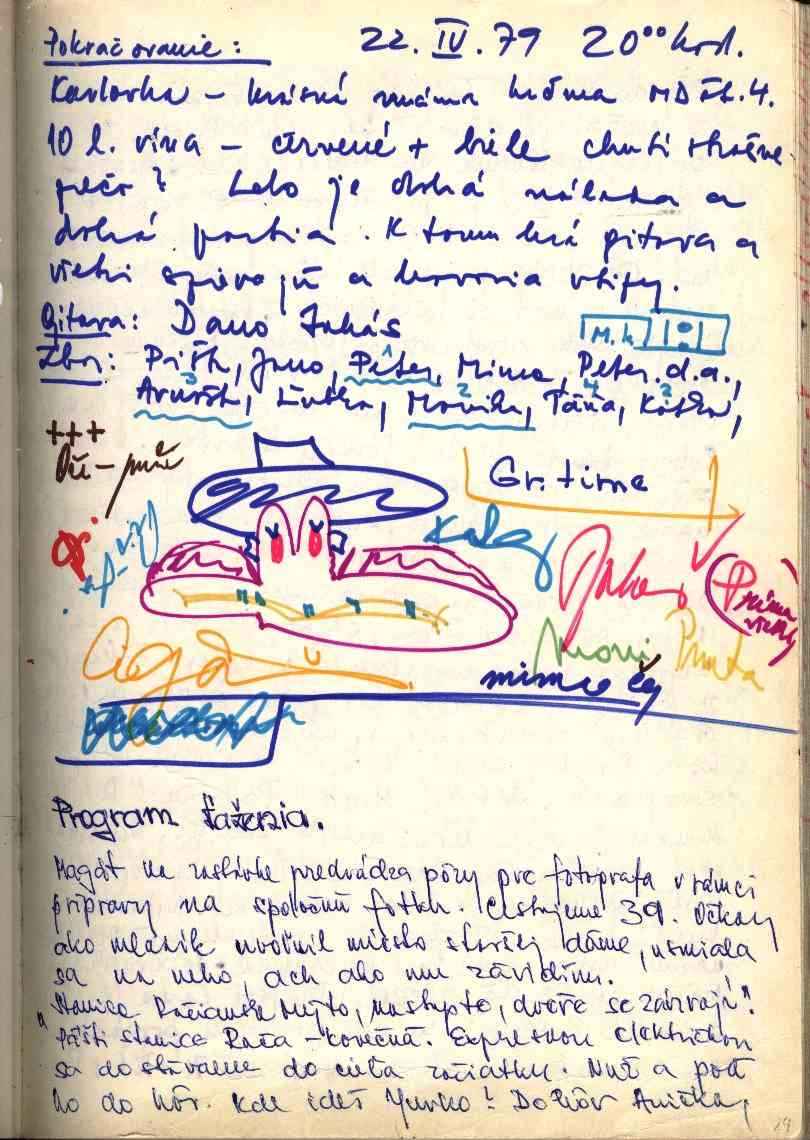 Pokračovanie: 22. IV. 79 20⁰⁰ hod.
Karlovka – krásna známa krčma MD št. 4.
10 l. vína – červené + biele chutí strašne
prečo? Lebo je dobrá nálada a
dobrá partia. K tomu hrá gitara a
všetci spievajú a hovoria vtipy.
Gitara: Dano Juhás
M.k.
Zbor: Jano, Peter, Mima, Peter d.a.,
3 2 4 2
Ľudka, Monika, Táňa, Katka,
+++
Gr. time
Kaky
Príma
Moni
Punta
mimo čj
Program ťaženia.
Magát na zastávke predvádza pózy pre fotografa v rámci
prípravy na spoločnú fotku. Cestujeme 39. Očkay
ako mládik uvoľnil miesto staršej dáme, usmiala
sa na neho, ach ako mu závidím.
"Stanica Račianske Mýto, nastupto, dveře se zavírají".
Příští stanice Rača – konečná. Expresnou električkou
sa dostávame do cieľa začiatku. Nuž a poď
ho do hôr. Kde ideš Yurko? Do hôr Anička,
24